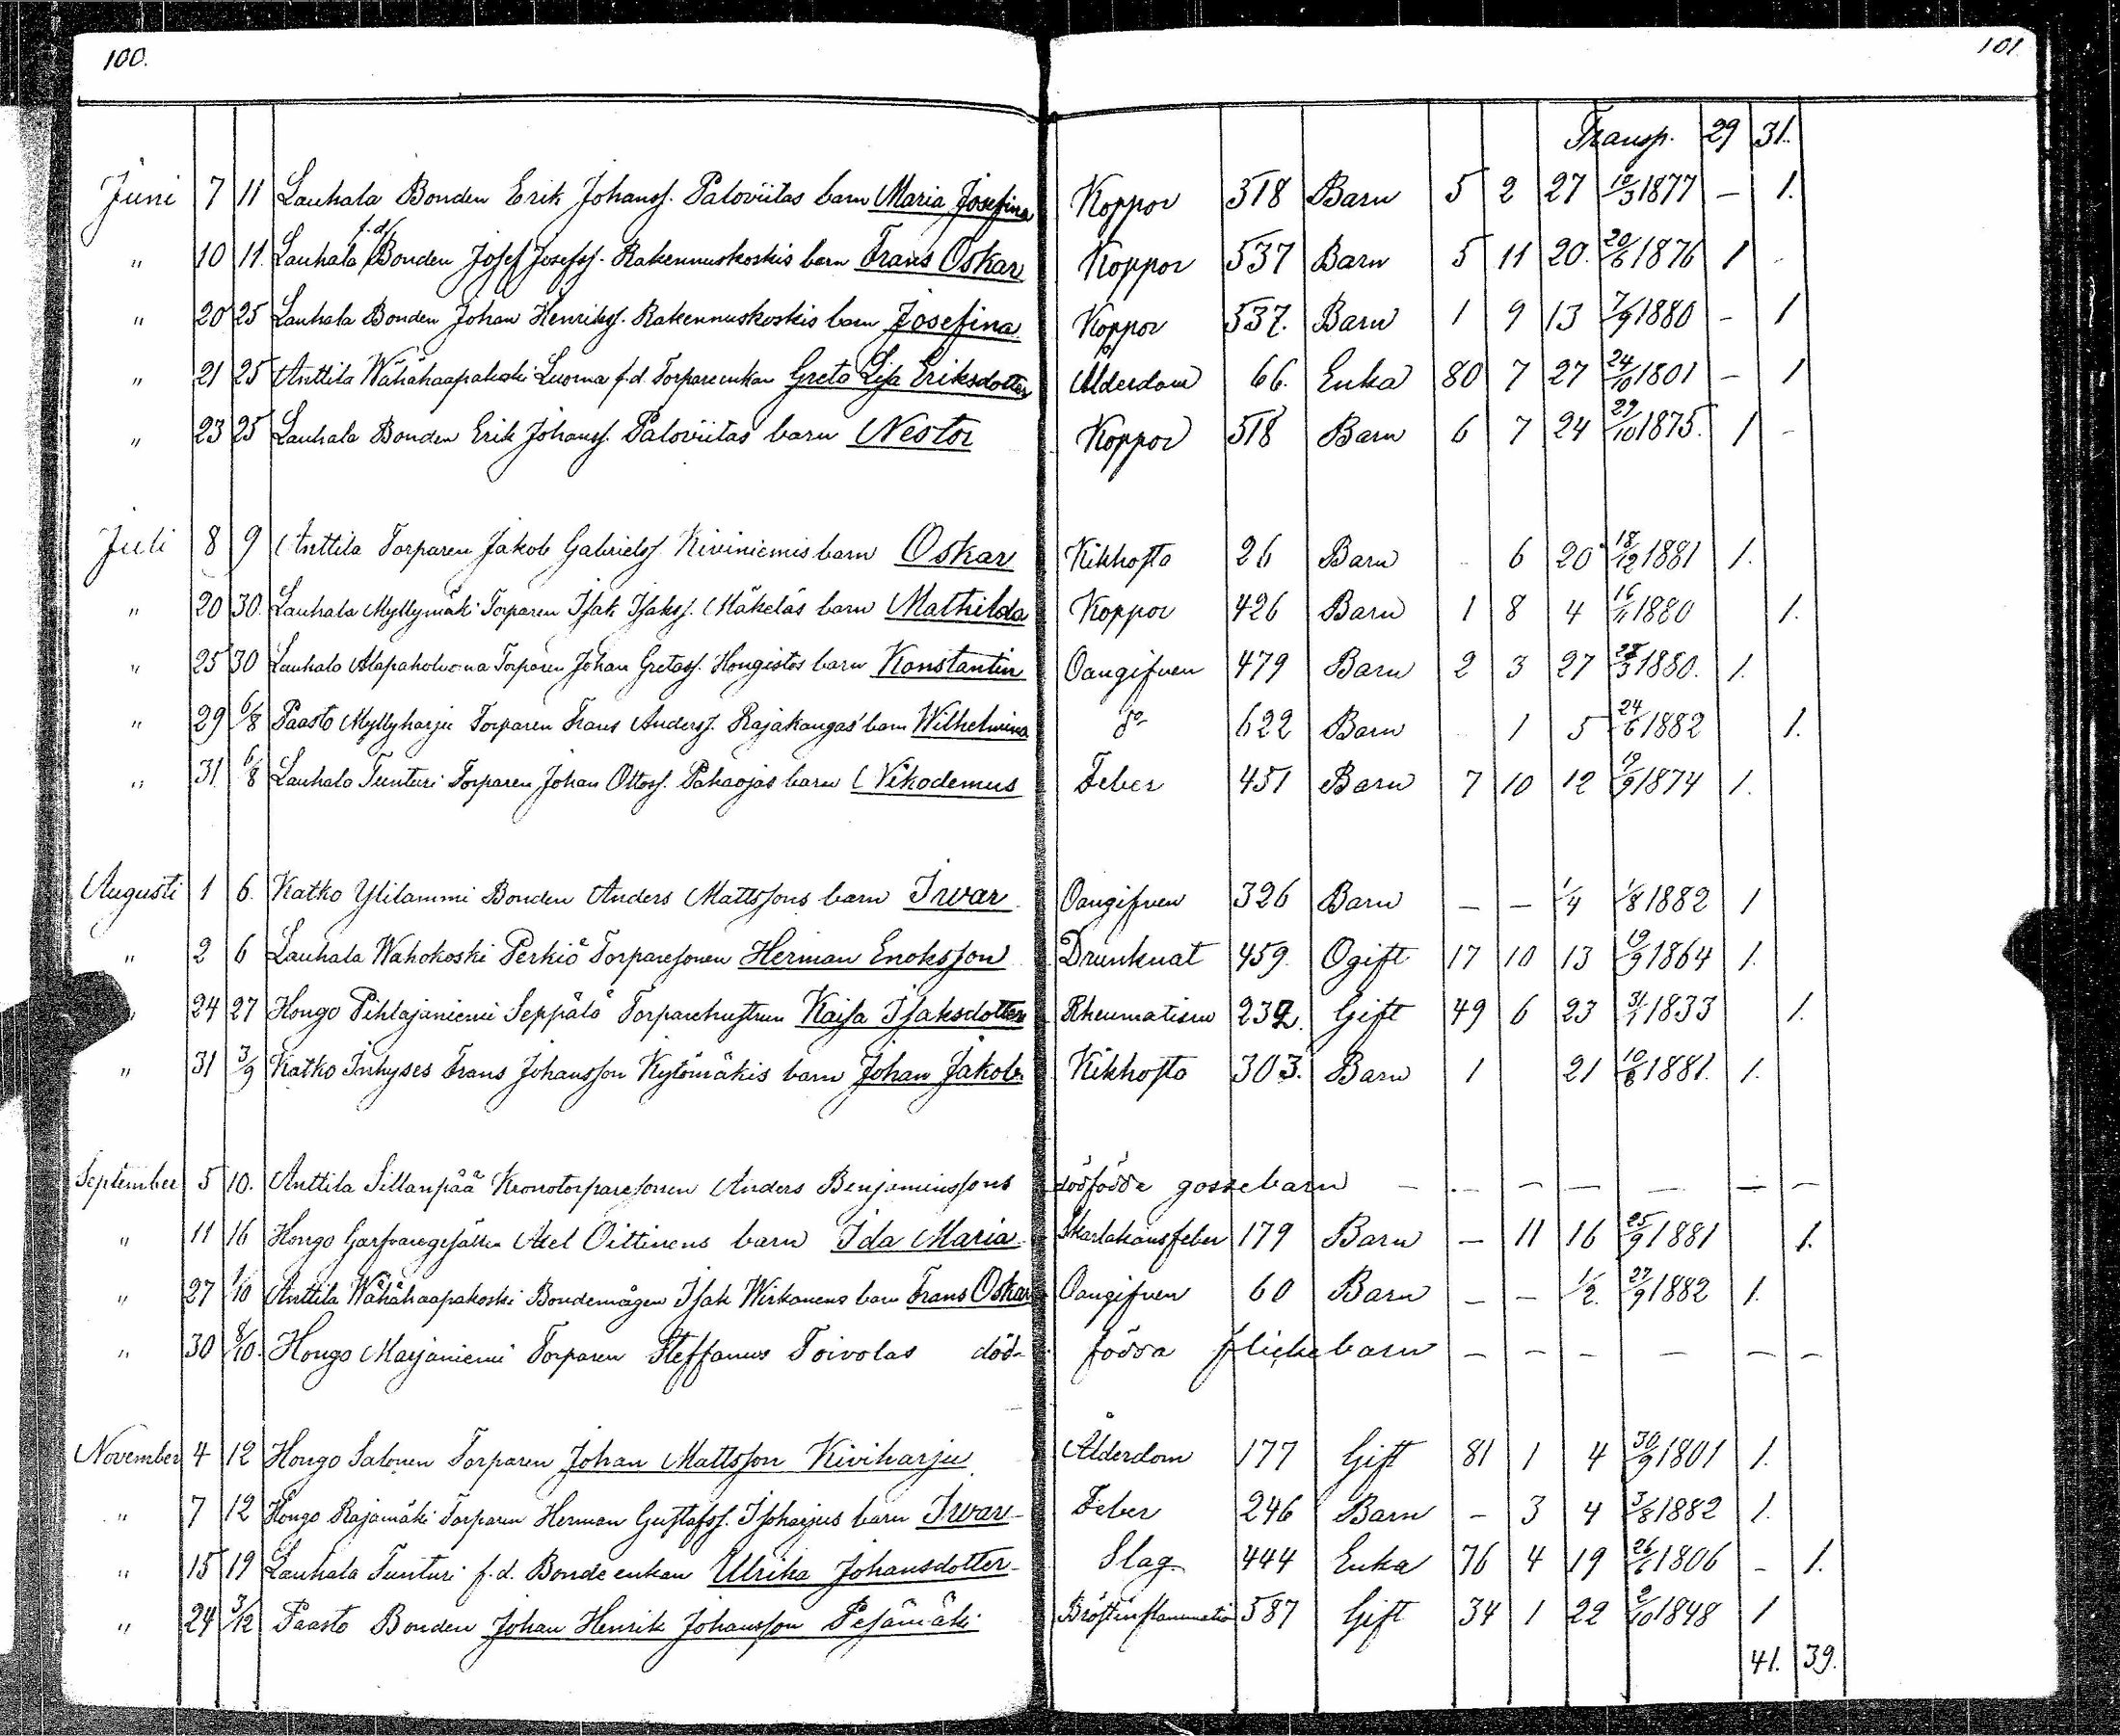 100. 101.
Transp. 29 31.
Juni 7 11 Lauhala Bonden Erik Johanss. Paloviitas barn Maria Josefina Koppor 518 Barn 5 2 27 10/3 1877 – 1.
" 10 11. Lauhala f.d. Bonden Josef Josefss. Rakennuskoskis barn Frans Oskar Koppor 537 Barn 5 11 20. 20/6 1876 1 -
" 20 25 Lauhala Bonden Johan Henrikss. Rakennuskoskis barn Josefina Koppor 537. Barn 1 9 13 7/9 1880 – 1
" 21 25 Anttila Wähähaapakoski Luoma f.d. Torpareenkan Greta Lisa Eriksdotter Ålderdom 66. Enka 80 7 27 24/10 1801 – 1
" 23 25 Lauhala Bonden Erik Johanss. Paloviitas barn Nestor Koppor 518 Barn 6 7 24 29/10 1875. 1 -
Juli 8 9 Anttila Torparen Jakob Gabrielss. Kiviniemis barn Oskar Kikhosta 26 Barn 6 20 18/12 1881 1.
" 20 30. Lauhala Myllymäki Torparen Isak Isakss. Mäkeläs barn Mathilda Koppor 426 Barn 1 8 4 16/11 1880 1.
" 25 30 Lauhala Alapaholuoma Torparen Johan Gretass. Hongistos barn Konstantin Oangifven 479 Barn 2 3 27 28/3 1880. 1.
" 29 6/8 Paasto Myllyharju Torparen Frans Anderss. Rajakangas' barn Wilhelmina d:o 622 Barn 1 5 24/6 1882 1.
" 31 6/8 Lauhala Tunturi Torparen Johan Ottoss. Pahaojas barn Nikodemus Feber 451 Barn 7 10 12 9/9 1874 1.
Augusti 1 6. Katko Ylilammi Bonden Anders Mattssons barn Irwar Oangifven 326 Barn – – 1/4 1/8 1882 1
" 2 6 Lauhala Wahokoski Perkiö Torparesonen Herman Enoksson Drunknat 459. Ogift 17 10 13 19/9 1864 1.
" 24 27 Hongo Pihlajaniemi Seppälä Torparehustrun Kaisa Isaksdotter Rheumatism 232. Gift 49 6 23 31/1 1833 1.
" 31 3/9 Katko Inhyses Frans Johansson Kytömäkis barn Johan Jakob. Kikhosta 303. Barn 1 21 10/8 1881. 1.
September 5 10. Anttila Sillanpää Kronotorparesonen Anders Benjaminssons dödfödda gossebarn – – – – – – –
" 11 16 Hongo Garfvaregesällen Axel Oittinens barn Ida Maria Skarlakansfeber 179 Barn – 11 16 25/9 1881 1.
" 27 1/10 Anttila Wähähaapakoski Bondemågen Isak Wirkanens barn Frans Oskar Oangifven 60 Barn – – 1/2. 27/9 1882 1.
" 30 8/10. Hongo Marjaniemi Torparen Steffanus Toivolas död- födda flickebarn – – – – – –
November 4 12 Hongo Salonen Torparen Johan Mattsson Kiviharju Ålderdom 177 Gift 81 1 4 30/9 1801 1.
" 7 12 Hongo Rajamäki Torparen Herman Gustafss. Isoharjus barn Irwar Feber 246 Barn - 3 4 3/8 1882 1.
" 15 19 Lauhala Tunturi f.d. Bondeenkan Ulrika Johansdotter Slag 444 Enka 76 4 19 26/6 1806 - 1.
" 24 3/12 Paasto Bonden Johan Henrik Johansson Pesämäki Bröstinflammation 587 Gift 34 1 22 2/10 1848 1
41. 39.